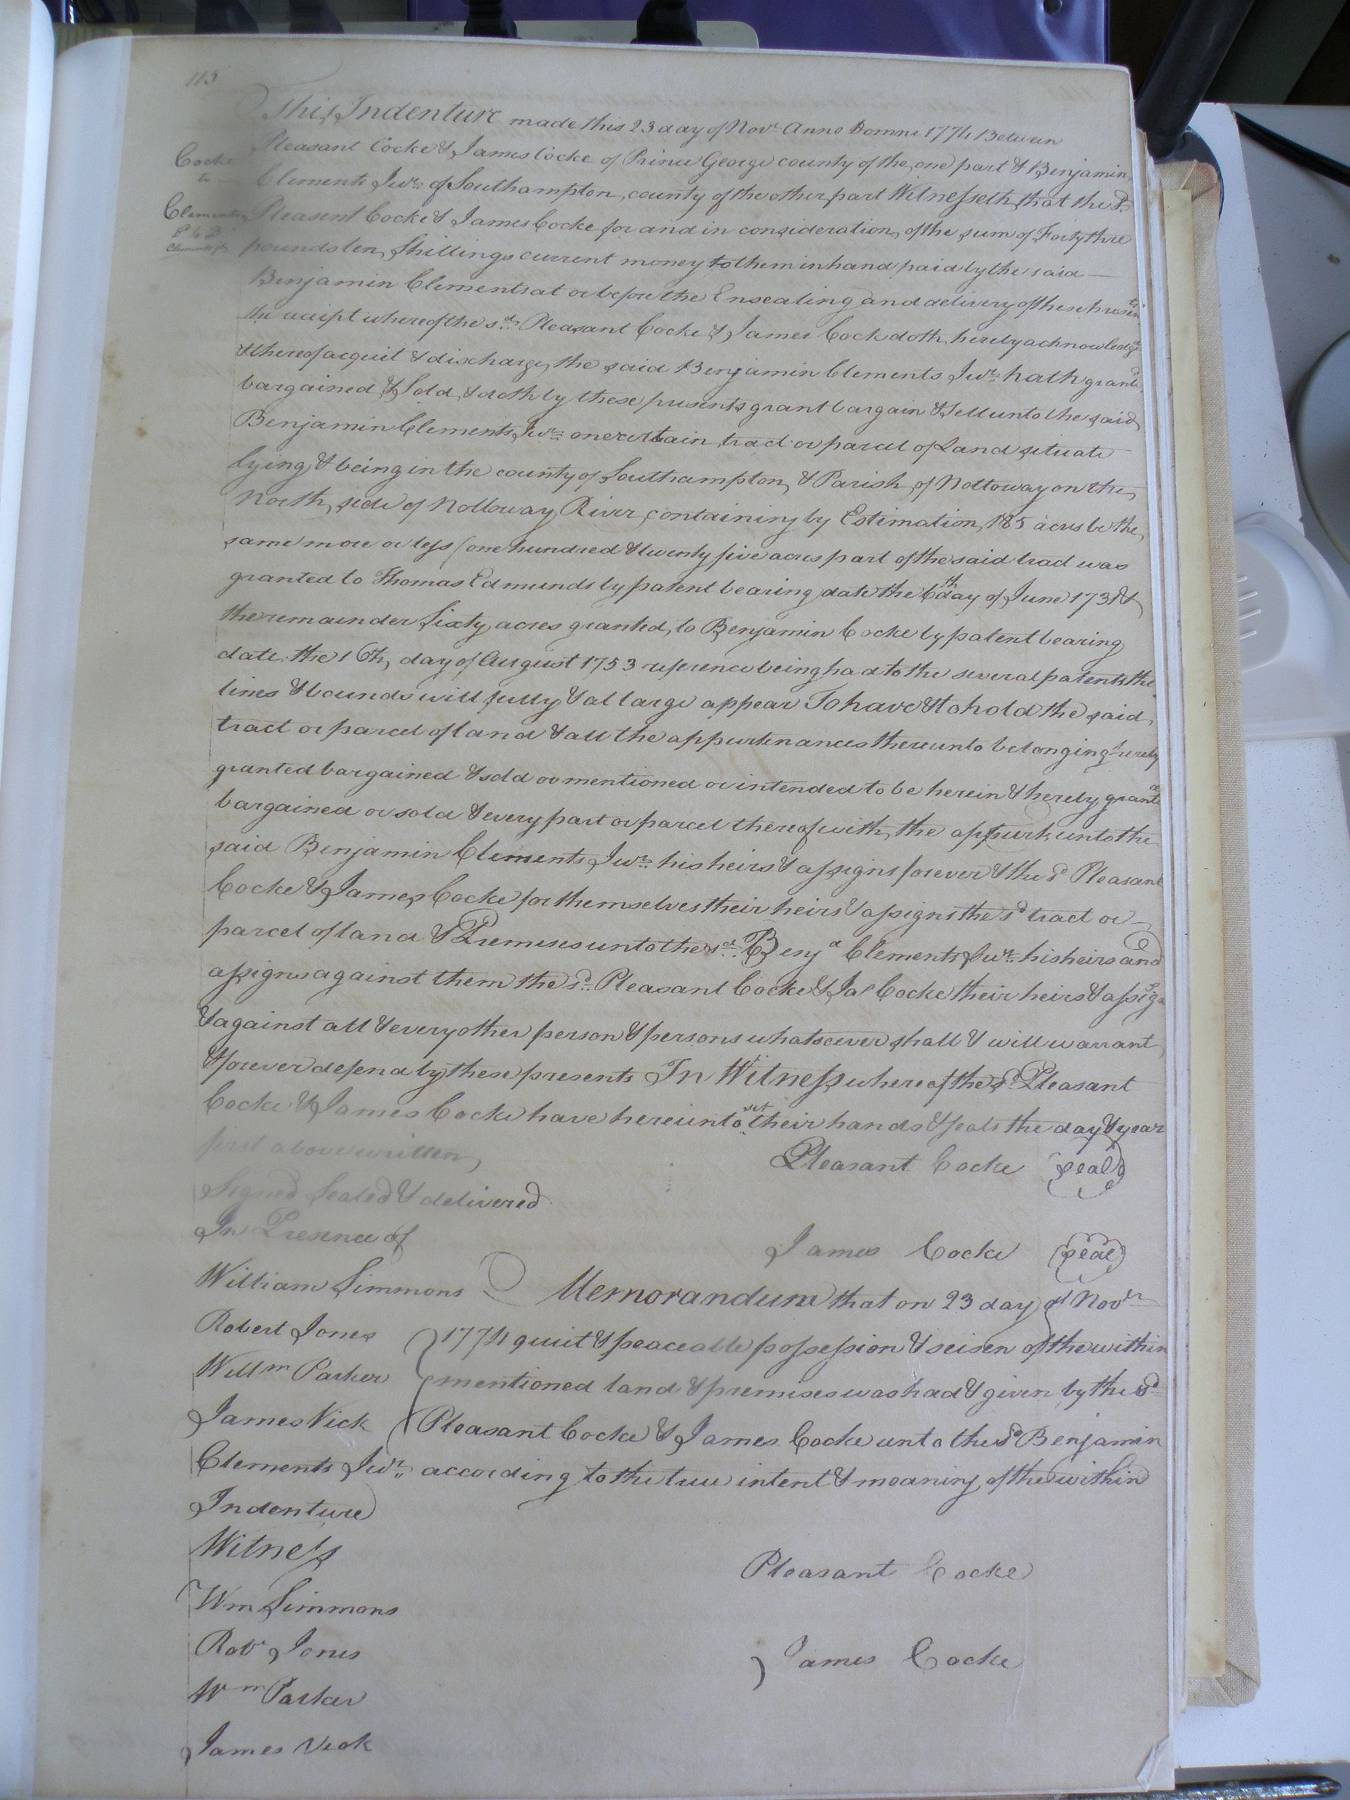 113
This Indenture made this 23 day of Novr. Anno Domni 1774 Between
Cocke
to
Clements
Pleasant Cocke & James Cocke of Prince George county of the one part & Benjamin
Clements Junr. of Southampton county of the other part Witnesseth that the sd.
Pleasent Cocke & James Cocke for and in consideration of the sum of Fortythree
pounds ten Shillings current money to them in hand paid by the said
Benjamin Clements at or before the Ensealing and delivery of these presents
the receipt whereof the sd. Pleasant Cocke & James Cock doth hereby acknowledge
& thereof acquit & discharge the said Benjamin Clements Junr. hath granted
bargained & Sold & doth by these presents grant bargain & Sell unto the said
Benjamin Clements Junr. one certain tract or parcel of Land situate
lying & being in the county of Southampton & Parish of Nottoway on the
North side of Nottoway River containing by Estimation 185 acres be the
same more or less (one hundred & twenty five acres part of the said tract was
granted to Thomas Edmunds by patent bearing date the 6th day of June 173 &
the remainder Sixty acres granted to Benjamin Cocke by patent bearing
date the 16th day of August 1753 reference being had to the several patents the
lines & bounds will fully & at large appear To have & to hold the said
tract or parcel of land & all the appurtenances thereunto belonging hereby
granted bargained & sold or mentioned or intended to be herein & hereby granted
bargained or sold & every part or parcel thereof with the appurts. unto the
said Benjamin Clements Junr. his heirs & assigns forever & the sd Pleasant
Cocke & James Cocke for themselves their heirs & assigns the sd tract or
parcel of land & Premises unto the sd. Benja Clements Junr. his heirs and
assigns against them the sd. Pleasant Cocke & Jas Cocke their heirs & assigs
& against all & every other person & persons whatsoever shall & will warrant
& forever defend by these presents In Witness whereof the sd Pleasant
Cocke & James Cocke have hereunto set their hands & seals the day & year
first above written
Pleasant Cocke (seal)
Signed Sealed & delivered
In Presence of
James Cocke (seal)
William Simmons
Robert Jones
Willm Parker
James Vick
Memorandum that on 23 day of Novbr
1774 quiet & peaceable possession & seisen of the within
mentioned land & premises was had & given by the sd
Pleasant Cocke & James Cocke unto the sd Benjamin
Clements Junr. according to the true intent & meaning of the within
Indenture
Witness
Pleasant Cocke
Wm Simmons
Robt Jones
James Cocke
Wm Parker
James Vick